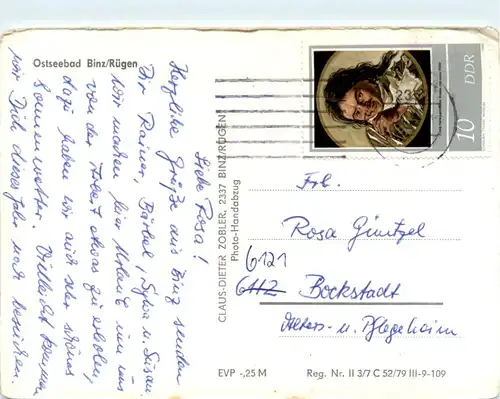 Ostseebad Binz/Rügen
Liebe Rosa!
Herzliche Grüße aus Binz senden
Dir Rainer, Bärbel, Sylva u. Susan.
Wir machen hier Urlaub um uns
von der Arbeit etwas zu erholen,
dazu haben wir auch sehr schönes
Sonnenwetter. Vielleicht kommen
wir Dich dieses Jahr noch besuchen
CLAUS-DIETER ZOBLER, 2337 BINZ/RÜGEN
Photo-Handabzug
DDR
10
Frl.
Rosa Güntzel
6121
6112 Bockstadt
Alters- u. Pflegeheim
EVP -,25 M
Reg. Nr. II 3/7 C 52/79 III-9-109